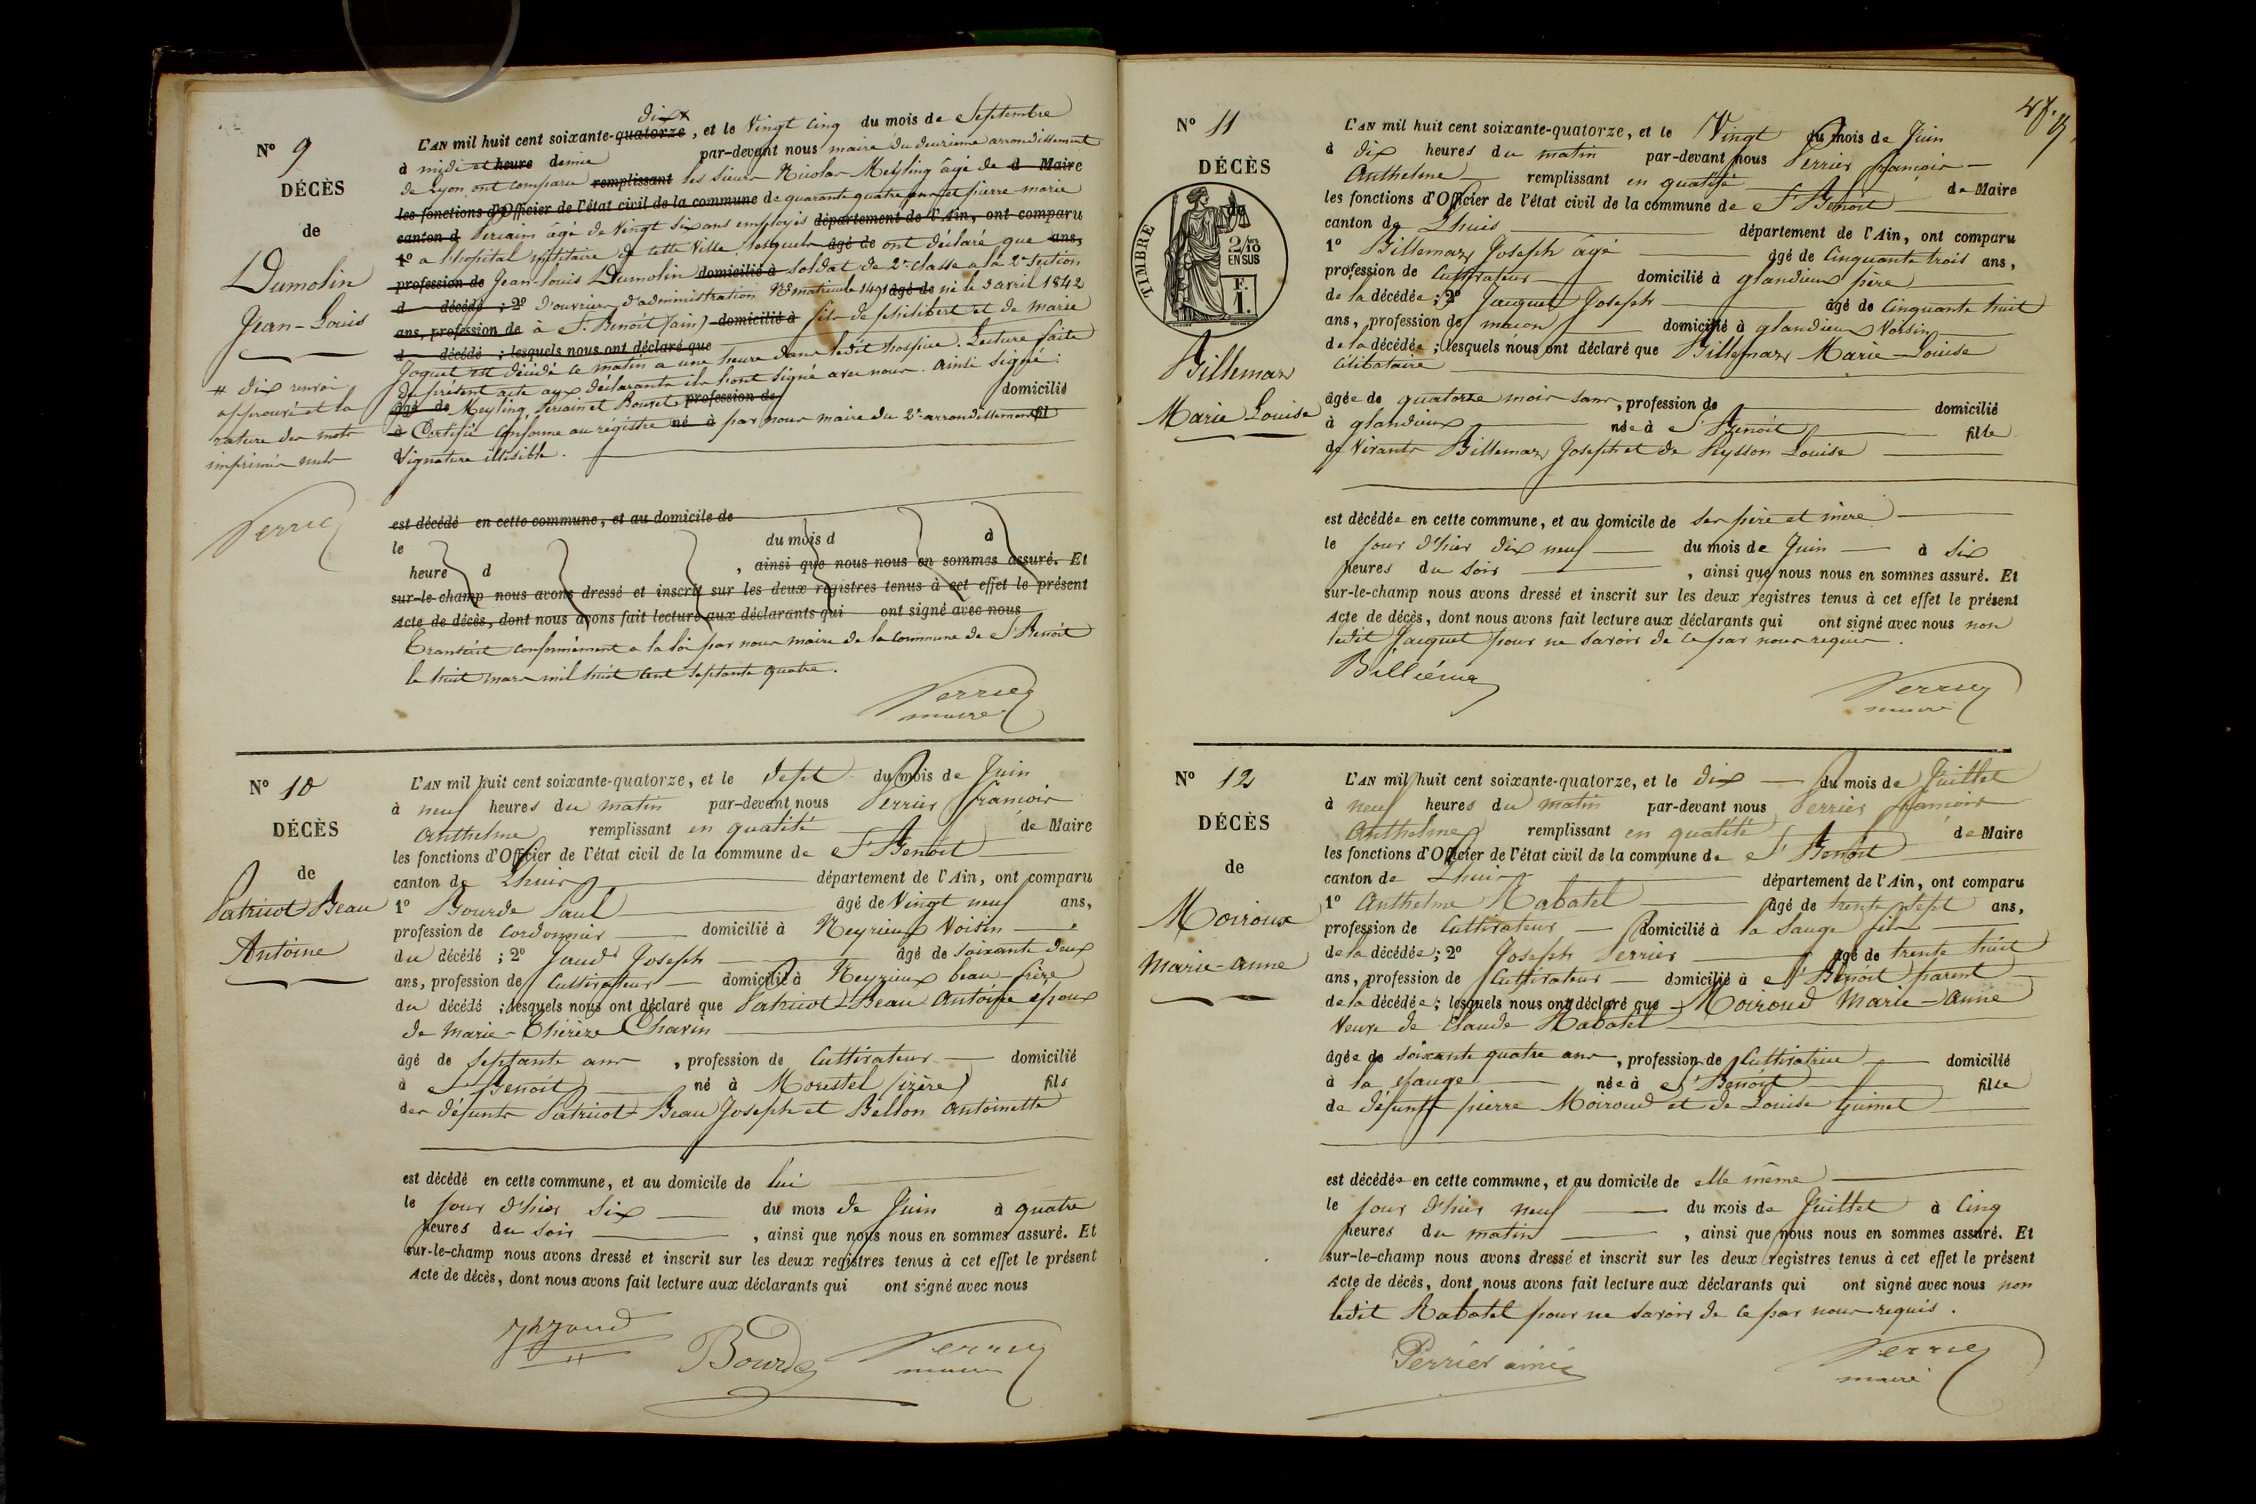 N° 9
DÉCÈS
de
Dumolin
Jean-Louis
# dix renvoi
approuvé et la
rature des mots
imprimés nuls
Perrier
dix #
L'AN mil huit cent soixante-quatorze, et le vingt cinq du mois de Septembre
à midi et heure demie par-devant nous maire du deuxième arrondissement
de Lyon ont comparu remplissant les sieurs Nicolas Meyling âgé de d Maire
les fonctions d'Officier de l'état civil de la commune de quarante quatre ans et pierre marie
canton d âgé de vingt six ans employés département de l'Ain, ont comparu
1° a l'hopital militaire de cette ville lesquels âgé de ont déclaré que ans,
profession de Jean-Louis Dumolin domicilié à soldat de 2e classe a la 2e section
d décédé ; 2° d'ouvriers d'administration N° matricule 1491 âgé de né le 3 avril 1842
ans, profession de à St Benoit (ain) domicilié à fils de philibert et de marie
d décédé ; lesquels nous ont déclaré que
Joguet est décédé ce matin a une heure dans ledit hospice. Lecture faite
du présent acte aux déclarants ils l'ont signé avec nous. ainsi signé :
âgé de Meyling, et profession de domicilié
à Certifié conforme au registre né à par nous maire du 2e arrondissement fil
d Signature illisible.
est décédé en cette commune, et au domicile de
le du mois d d
heure d , ainsi que nous nous en sommes assuré. Et
sur-le-champ nous avons dressé et inscrit sur les deux registres tenus à cet effet le présent
Acte de décès, dont nous avons fait lecture aux déclarants qui ont signé avec nous
Transcrit conformément a la loi par nous maire de la commune de St Benoit
le huit mars mil huit cent septante quatre.
Perrier
maire
N° 10
DÉCÈS
de
Patricot-Beau
Antoine
L'AN mil huit cent soixante-quatorze, et le Sept du mois de Juin
à neuf heures du matin par-devant nous Perrier françois
Anthelme remplissant en qualité de Maire
les fonctions d'Officier de l'état civil de la commune de St Benoit
canton de Lhuis département de l'Ain, ont comparu
1° Bourde Paul âgé de Vingt neuf ans,
profession de Cordonnier domicilié à Neyrieux Voisin
du décédé ; 2° Jaud Joseph âgé de soixante deux
ans, profession de Cultivateur domicilié à Neyrieux beau-frère
du décédé ; lesquels nous ont déclaré que Patricot-Beau Antoine époux
de Marie-Thérèze Chavin
âgé de septante ans , profession de Cultivateur domicilié
à St Benoit né à Morestel (izère) fils
des défunts Patricot-Beau Joseph et Bellon Antoinette
est décédé en cette commune, et au domicile de lui
le jour d'hier six du mois de Juin à quatre
heures du soir , ainsi que nous nous en sommes assuré. Et
sur-le-champ nous avons dressé et inscrit sur les deux registres tenus à cet effet le présent
Acte de décès, dont nous avons fait lecture aux déclarants qui ont signé avec nous
Jh Jaud
Bourde
Perrier
maire
N° 11
DÉCÈS
de
TIMBRE
2/10
EN SUS
F.
1.
Billemaz
Marie Louise
L'AN mil huit cent soixante-quatorze, et le Vingt du mois de Juin
à dix heures du matin par-devant nous Perrier françois
Anthelme remplissant en qualité de Maire
les fonctions d'Officier de l'état civil de la commune de St Benoit
canton de Lhuis département de l'Ain, ont comparu
1° Billemaz Joseph âgé âgé de Cinquante trois ans,
profession de Cultivateur domicilié à glandieux père
de la décédée ; 2° Jacquet Joseph âgé de Cinquante huit
ans, profession de maçon domicilié à glandieux Voisin
de la décédée ; lesquels nous ont déclaré que Billemaz Marie-Louise
Célibataire
âgée de quatorze mois sans , profession de domicilié
à glandieux née à St Benoit fille
de Vivants Billemaz Joseph et de Peysson Louise
est décédée en cette commune, et au domicile de ses père et mère
le jour d'hier dix neuf du mois de Juin à six
heures du soir , ainsi que nous nous en sommes assuré. Et
sur-le-champ nous avons dressé et inscrit sur les deux registres tenus à cet effet le présent
Acte de décès, dont nous avons fait lecture aux déclarants qui ont signé avec nous non
ledit Jacquet pour ne savoir de ce par nous requis.
Billiémaz
Perrier
maire
N° 12
DÉCÈS
de
Moiroux
Marie-Anne
L'AN mil huit cent soixante-quatorze, et le dix du mois de Juillet
à neuf heures du matin par-devant nous Perrier françois
Anthelme remplissant en qualité de Maire
les fonctions d'Officier de l'état civil de la commune de St Benoit
canton de Lhuis département de l'Ain, ont comparu
1° Anthelme Rabatel âgé de trente sept ans,
profession de Cultivateur domicilié à la Sauge fils
de la décédée ; 2° Joseph Perrier âgé de trente huit
ans, profession de Cultivateur domicilié à St Benoit parent
de la décédée ; lesquels nous ont déclaré que Moiroud Marie-Anne
Veuve de Claude Rabatel
âgée de soixante quatre ans , profession de Cultivatrice domicilié
à la Sauge née à St Benoit fille
de défunt pierre Moiroud et de Louise Guinet
est décédée en cette commune, et au domicile de elle même
le jour d'hier neuf du mois de Juillet à Cinq
heures du matin , ainsi que nous nous en sommes assuré. Et
sur-le-champ nous avons dressé et inscrit sur les deux registres tenus à cet effet le présent
Acte de décès, dont nous avons fait lecture aux déclarants qui ont signé avec nous non
ledit Rabatel pour ne savoir de ce par nous requis.
Perrier ainé
Perrier
maire